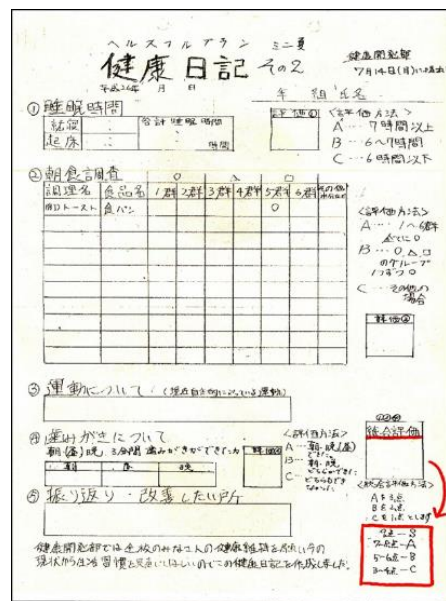 ヘルスフルプラン ミニ夏
健康日記 その2
健康開発部
7月14日(月)に提出
平成26年 月 日
年 組 氏名
① 睡眠時間
就寝 : 合計睡眠時間
起床 : 時間
評価①
<評価方法>
A … 7時間以上
B … 6〜7時間
C … 6時間以下
② 朝食調査
○ △ □
調理名 食品名 1群 2群 3群 4群 5群 6群
例)トースト 食パン ○
<評価方法>
A … 1〜6群
全てに○
B … ○△□
のグループ
1つずつ○
C … その他の
場合
評価②
③ 運動について
④ 歯みがきについて
朝・(昼)・晩、3分間 歯みがきができましたか
朝 昼 晩
評価④
<評価方法>
A … 朝・晩(昼)
できた。
B … 朝・晩、
C … どちらもできなかった。
総合評価
<総合評価方法>
Aを3点
Bを2点
Cを1点とします
9点-S
7-8点-A
5-6点-B
3-4点-C
⑤ 振り返り・改善したい所
健康開発部では全校のみなさんの健康維持を願い、今の
現状から生活習慣を見直してほしいのでこの健康日記を作成しました。